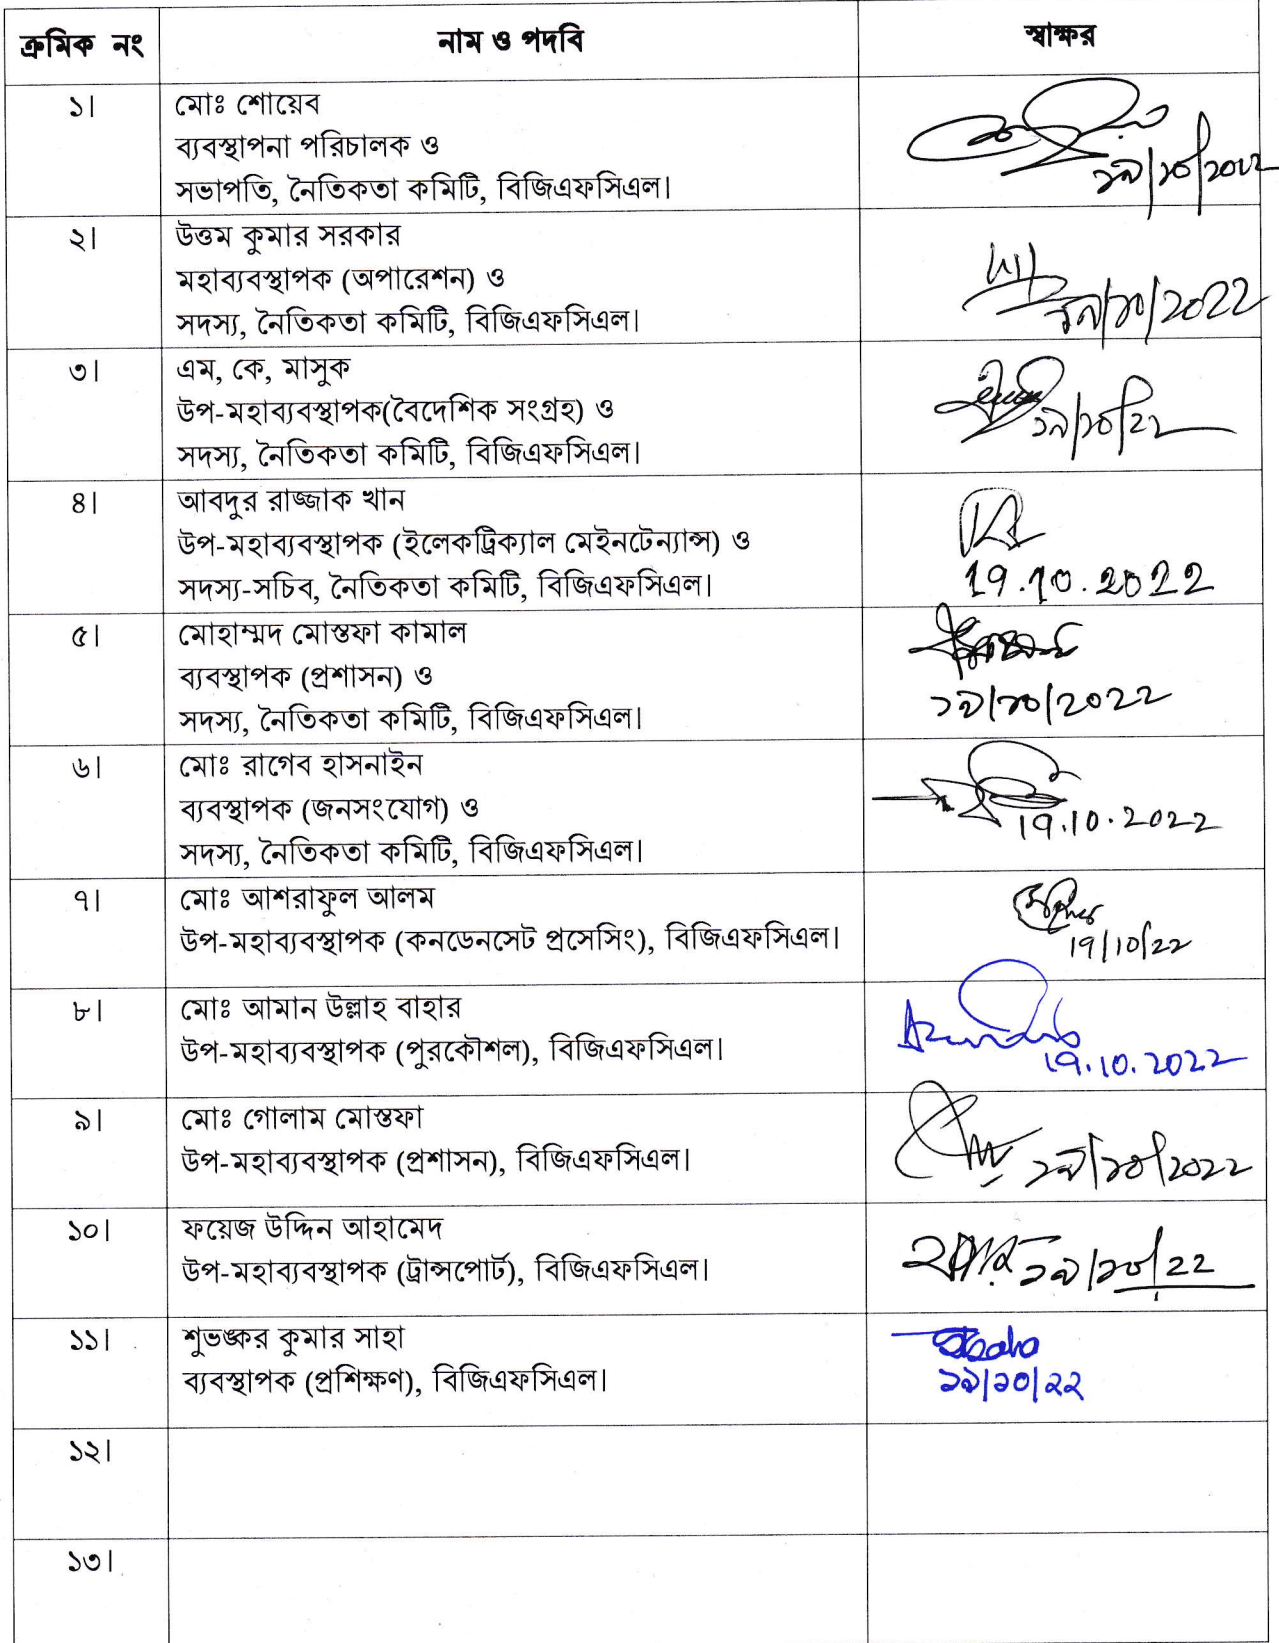 ক্রমিক নং	নাম ও পদবি	স্বাক্ষর
১।	মোঃ শোয়েব
ব্যবস্থাপনা পরিচালক ও
সভাপতি, নৈতিকতা কমিটি, বিজিএফসিএল।
১৯/১০/২০২২
২।	উত্তম কুমার সরকার
মহাব্যবস্থাপক (অপারেশন) ও
সদস্য, নৈতিকতা কমিটি, বিজিএফসিএল।
১৯/১০/2022
৩।	এম, কে, মাসুক
উপ-মহাব্যবস্থাপক(বৈদেশিক সংগ্রহ) ও
সদস্য, নৈতিকতা কমিটি, বিজিএফসিএল।
১৯/১০/২২
৪।	আবদুর রাজ্জাক খান
উপ-মহাব্যবস্থাপক (ইলেকট্রিক্যাল মেইনটেন্যান্স) ও
সদস্য-সচিব, নৈতিকতা কমিটি, বিজিএফসিএল।
19.10.2022
৫।	মোহাম্মদ মোস্তফা কামাল
ব্যবস্থাপক (প্রশাসন) ও
সদস্য, নৈতিকতা কমিটি, বিজিএফসিএল।
১৯/১০/2022
৬।	মোঃ রাগেব হাসনাইন
ব্যবস্থাপক (জনসংযোগ) ও
সদস্য, নৈতিকতা কমিটি, বিজিএফসিএল।
19.10.2022
৭।	মোঃ আশরাফুল আলম
উপ-মহাব্যবস্থাপক (কনডেনসেট প্রসেসিং), বিজিএফসিএল।
19/10/22
৮।	মোঃ আমান উল্লাহ বাহার
উপ-মহাব্যবস্থাপক (পুরকৌশল), বিজিএফসিএল।
19.10.2022
৯।	মোঃ গোলাম মোস্তফা
উপ-মহাব্যবস্থাপক (প্রশাসন), বিজিএফসিএল।
১৯/১০/2022
১০।	ফয়েজ উদ্দিন আহামেদ
উপ-মহাব্যবস্থাপক (ট্রান্সপোর্ট), বিজিএফসিএল।
১৯/১০/22
১১।	শুভঙ্কর কুমার সাহা
ব্যবস্থাপক (প্রশিক্ষণ), বিজিএফসিএল।
১৯/১০/২২
১২।
১৩।